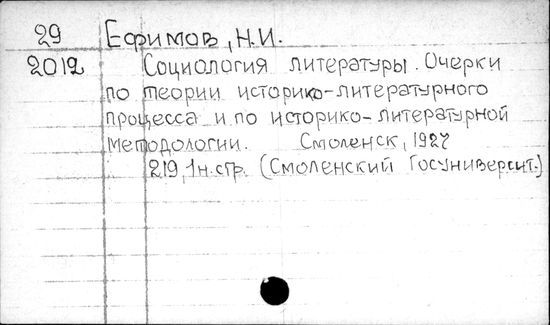 29 Ефимов, Н.И.
2012 Социология литературы. Очерки
по теории историко-литературного
процесса и по историко-литературной
методологии. Смоленск, 1927
219, 1 н.стр. (Смоленский Госуниверсит.)